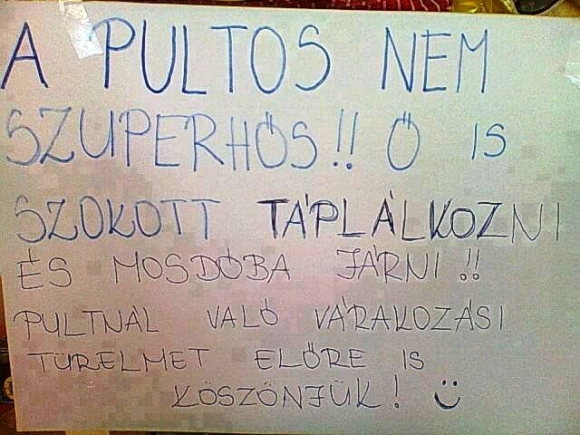 A PULTOS NEM
SZUPERHŐS!! Ő IS
SZOKOTT TÁPLÁLKOZNI
ÉS MOSDÓBA JÁRNI!!
PULTNÁL VALÓ VÁRAKOZÁSI
TÜRELMET ELŐRE IS
KÖSZÖNJÜK! Ü